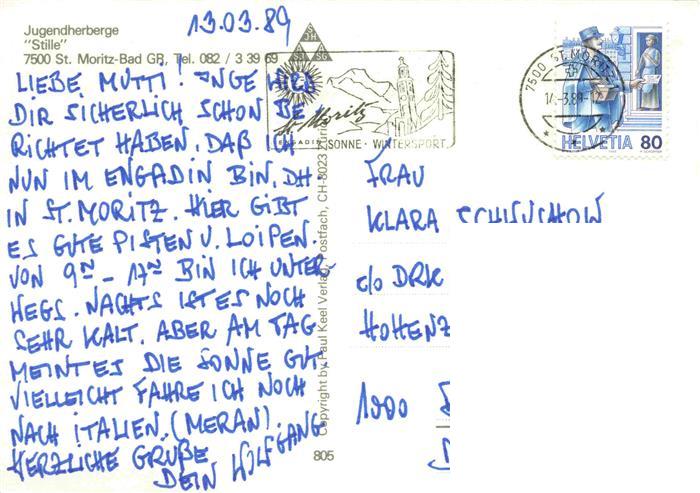 13.03.89
Jugendherberge
"Stille"
7500 St. Moritz-Bad GR, Tel. 082 / 3 39 69
LIEBE MUTTI! INGE WIRD
DIR SICHERLICH SCHON BE
RICHTET HABEN, DAß ICH
NUN IM ENGADIN BIN, DH.
IN ST. MORITZ. HIER GIBT
ES GUTE PISTEN U. LOIPEN.
VON 9 - 17 BIN ICH UNTER-
WEGS. NACHTS IST ES NOCH
SEHR KALT. ABER AM TAG
MEINT ES DIE SONNE GUT.
VIELLEICHT FAHRE ICH NOCH
NACH ITALIEN. (MERAN).
HERZLICHE GRÜßE
DEIN WOLFGANG
JH
SJ SG
St. Moritz
SONNE · WINTERSPORT
7500 ST. MORITZ
HELVETIA 80
Copyright by Paul Keel Verlag, Postfach, CH-8023
805
FRAU
KLARA
c/o DRK
HOHENZ
1000